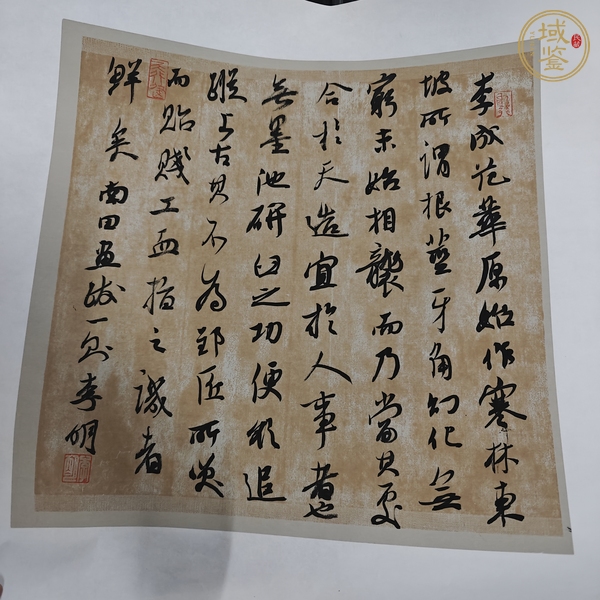 李成范華原始作寒林東
坡所謂根莖牙角幻化無
窮未始相襲而乃當其處
合於天造宜於人事者也
無墨池研臼之功便欲追
縱上古其不為郢匠所笑
而貽賤工血指之譏者
鮮矣 南田畫跋一則 李明
域鑒